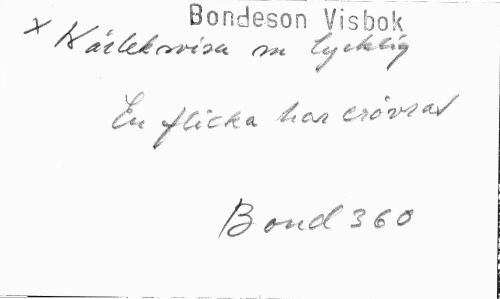 Bondeson Visbok
x Kärleksvisa m lycklig
En flicka har erövrat
Bond 360